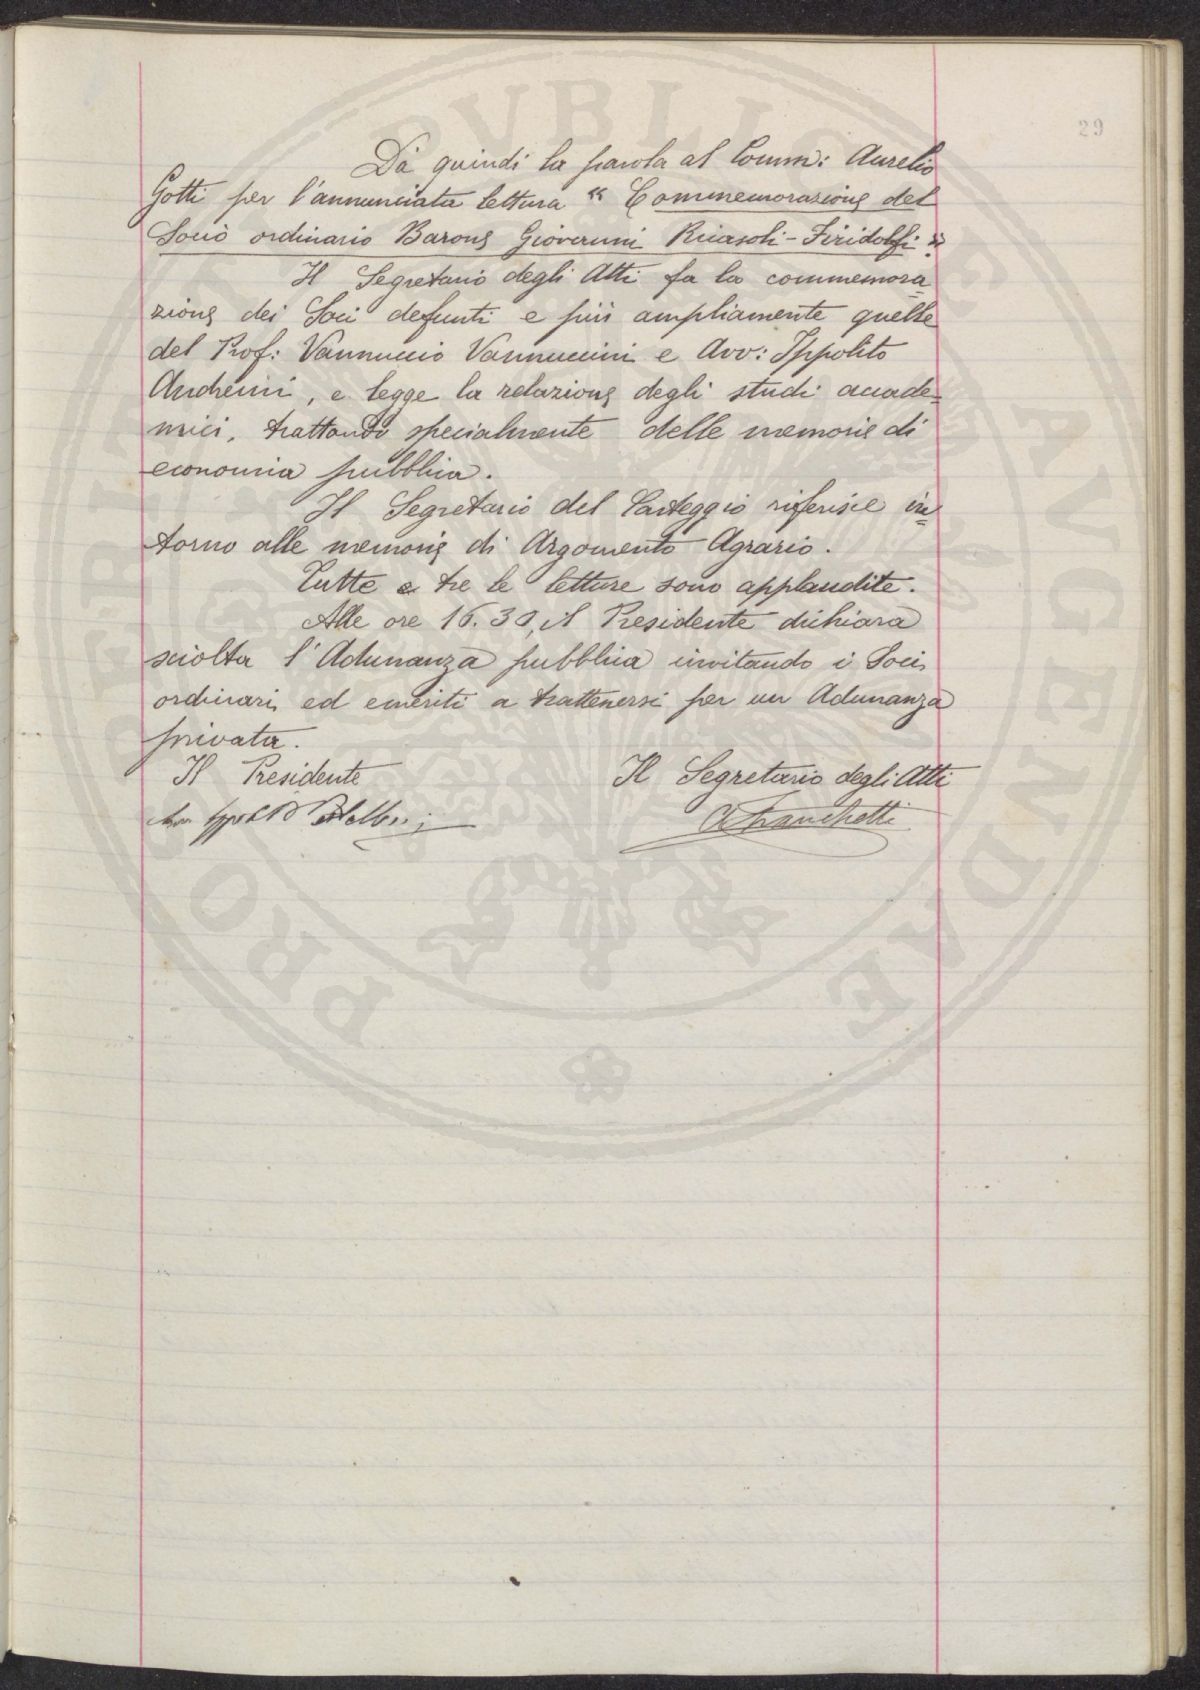 29
Dà quindi la parola al Comm: Aurelio
Gotti per l'annunciata lettura “ Commemorazione del
Socio ordinario Barone Giovanni Ricasoli-Firidolfi ”.
Il Segretario degli Atti fa la commemora=
zione dei Soci defunti e più ampliamente quelle
del Prof: Vannuccio Vannuccini e Avv: Ippolito
Andreini, e legge la relazione degli studi accade=
mici, trattando specialmente delle memorie di
economia pubblica.
Il Segretario del Carteggio riferisce in=
torno alle memorie di Argomento Agrario.
Tutte e tre le letture sono applaudite.
Alle ore 16.30, il Presidente dichiara
sciolta l'Adunanza pubblica invitando i Soci
ordinari ed emeriti a trattenersi per un Adunanza
privata.
Il Presidente
Il Segretario degli Atti
A Franchetti
PROSPERITATI PVBLICAE AVGENDAE